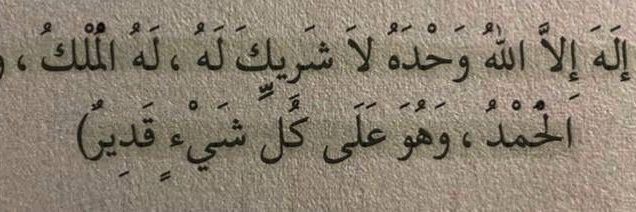 إِلَهَ إِلاَّ اللهُ وَحْدَهُ لاَ شَرِيكَ لَهُ ، لَهُ الْمُلْكُ ، و
الْحَمْدُ ، وَهُوَ عَلَى كُلِّ شَيْءٍ قَدِيرٌ)